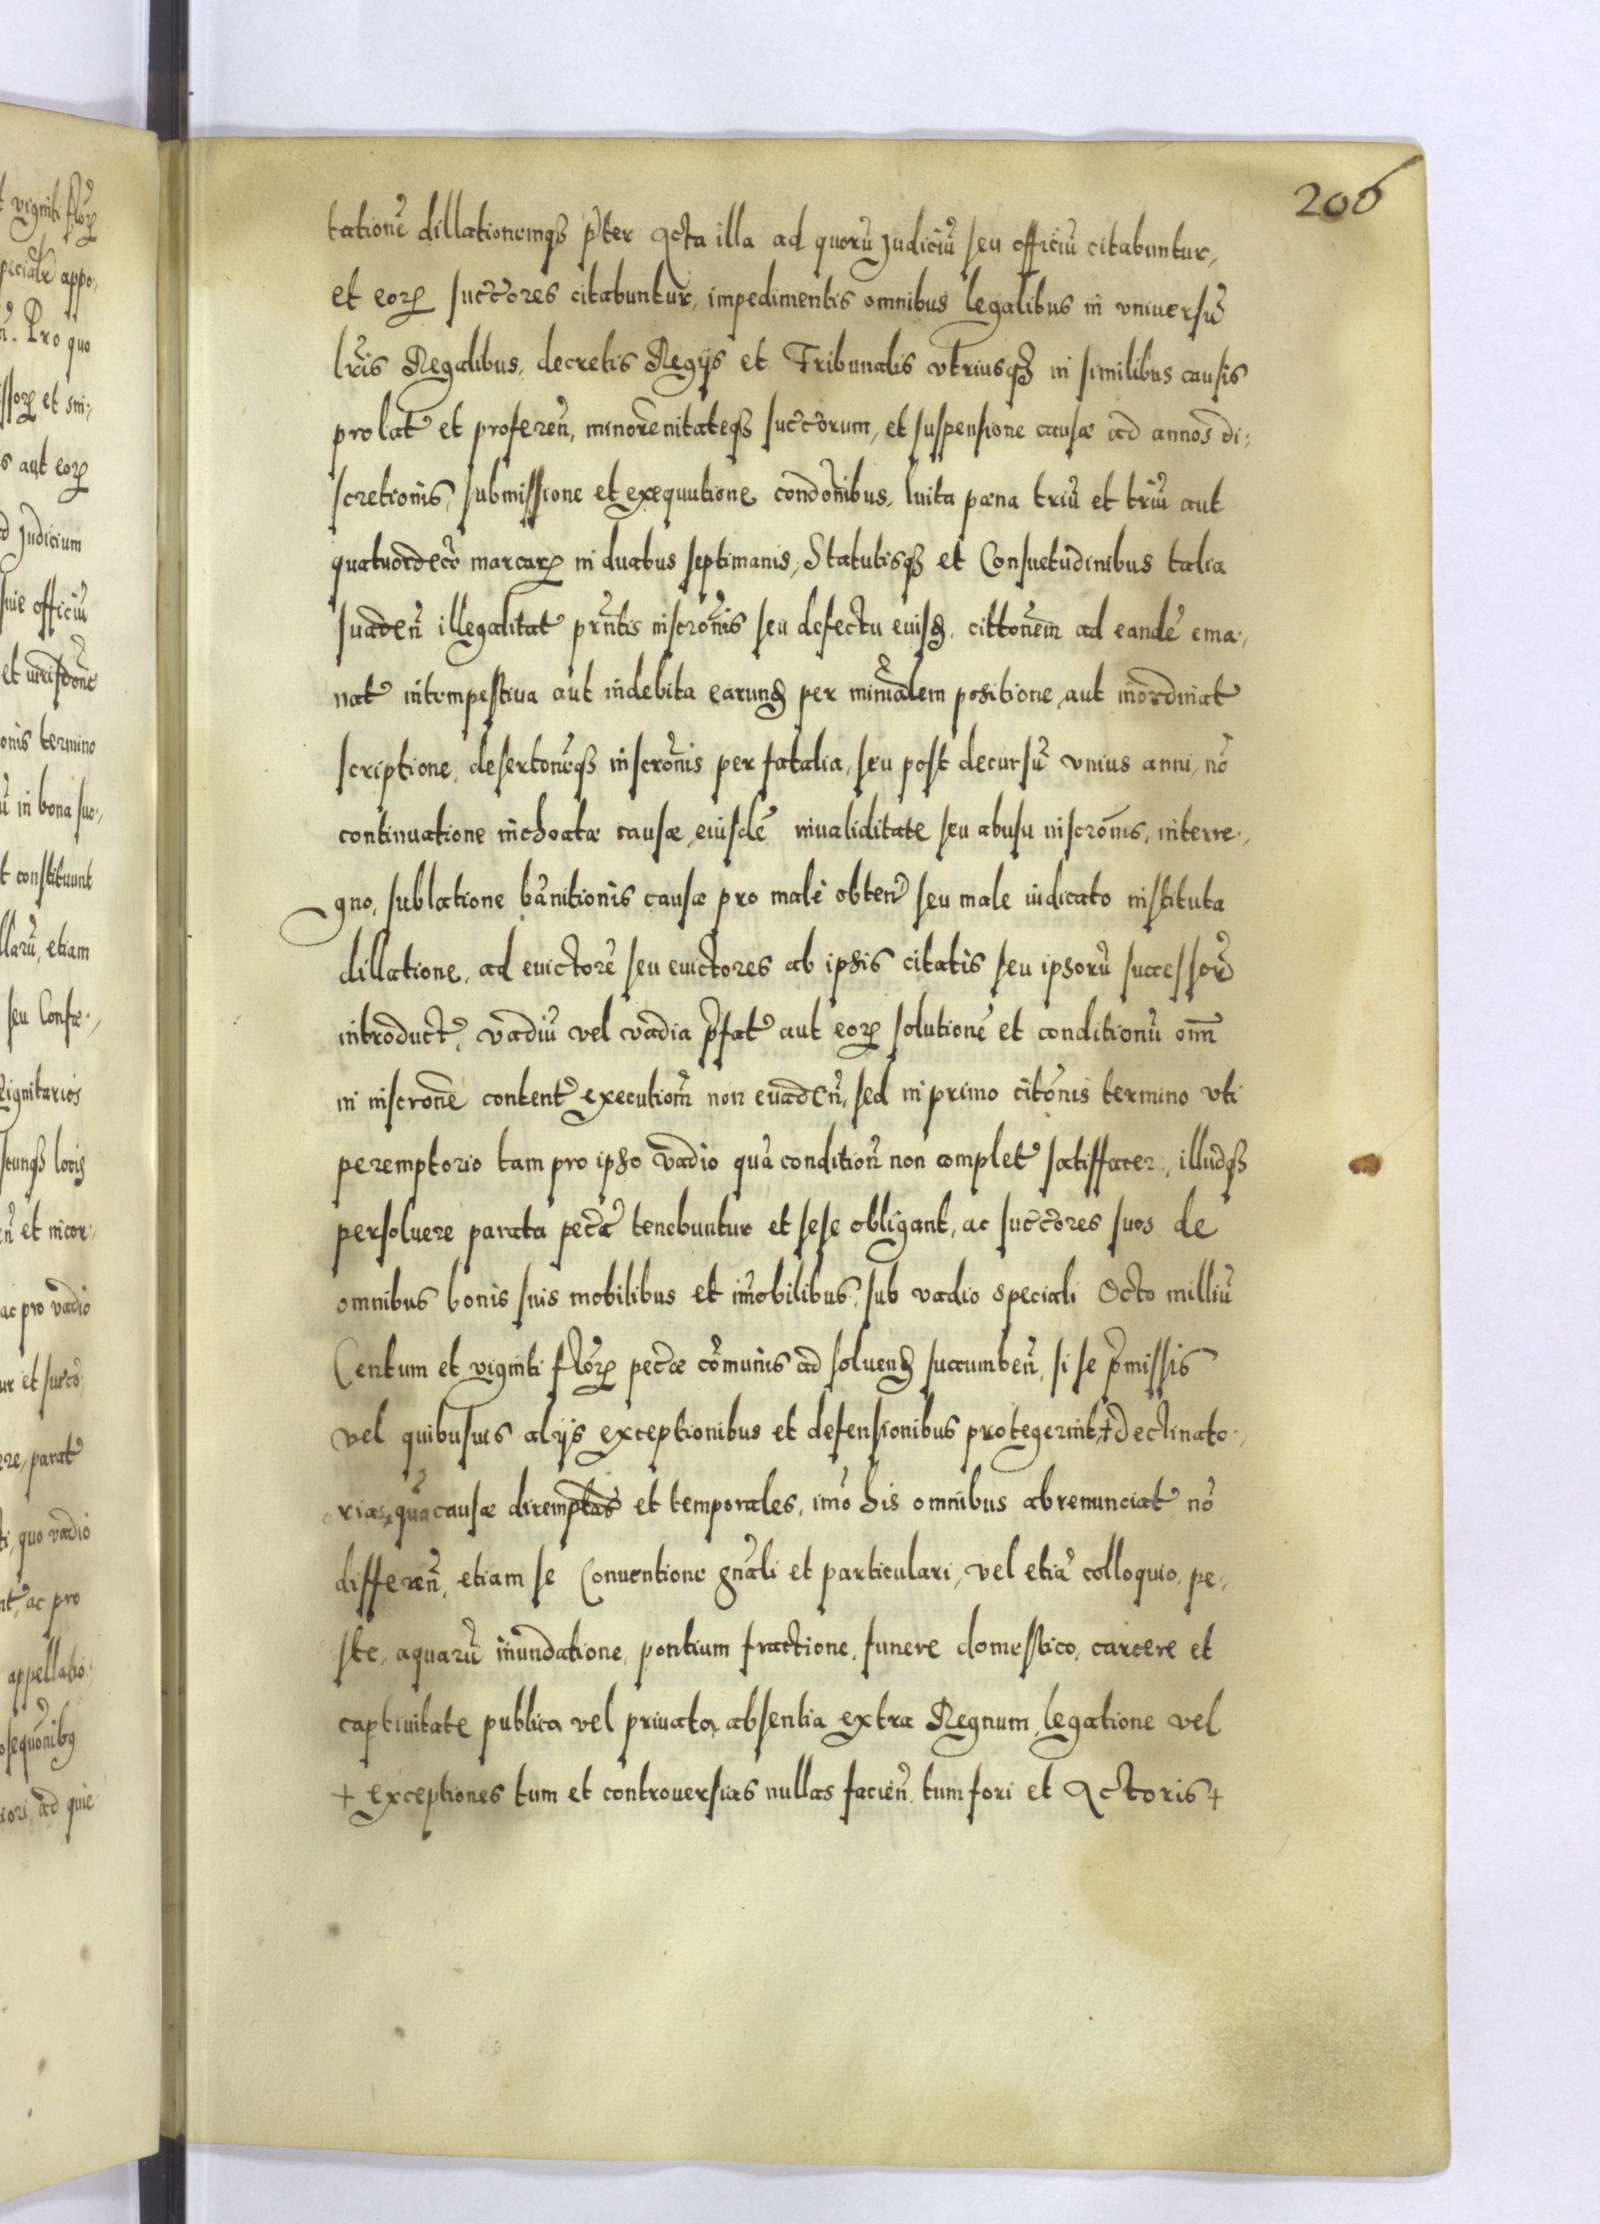 206
tationẽ dillationemqȝ p̃ter Acta illa ad quorũ Judiciũ seu officiũ citabuntur,
et eorꝝ succ̃ores citabuntur, impedimentis omnibus legalibus in vniuersũ
lr̃is Regalibus, decretis Regijs et Tribunalis vtriusqȝ in similibus causis
prolat̃ et proferen̄, minorẽnitateqȝ succ̃orum, et suspensione causæ ad annos di,
scretionis, submissione et exequutione condõnibus, luita pæna triũ et triũ aut
quatuordecĩ marcarꝝ in duabus septimanis, Statutisqȝ et Consuetudinibus talia
suaden̄ illegalitat̃ prñtis inscrõnis seu defectu euisȝ, cittõnem ad eandẽ ema,
nat̃ intempestiua aut indebita earunȝ per minrãlem positione, aut inordinat̃
scriptione, desertonẽqȝ inscrõnis per fatalia, seu post decursũ vnius anni, nõ
continuatione inchoatæ causæ, euisdẽ inualiditate seu abusu inscrõnis, interre,
gno, sublatione bãnitionis causæ pro malè obten̄ seu male iudicato instituta
dillatione, ad euictorẽ seu euictores ab ipsis citatis seu ipsorũ successor̃
introduct̃, vadiũ vel vadia p̃fat̃ aut eorꝝ solutionẽ et conditionũ om̄
in inscrõne content̃ executiom̃ non euaden̄, sed in primo citõnis termino vti
peremptorio tam pro ipso vadio quã condition̄ non complet̃ satisfacer, illudqȝ
persoluere parata pec̃a tenebuntur et sese obligant, ac succ̃ores suos de
omnibus bonis suis mobilibus et im̃obilibus, sub vadio speciali Octo milliũ
Centum et viginti flõrꝝ pec̃æ cõmunis ad soluenȝ succumben̄, si se p̃missis
vel quibusuis alijs exceptionibus et defensionibus protegerint, + declinato,
rias, quã causæ diremptas et temporales, imõ his omnibus abrenunciat̃ nõ
differen̄, etiam se Conuentione gnãli et particulari, vel etiã colloquio, pe,
ste, aquarũ inundatione, pontium fractione, funere domestico, carcere et
captiuitate publica vel priuata, absentia extra Regnum, legatione vel
+ exceptiones tum et controuersias nullas facien̄ tum fori et Actoris +